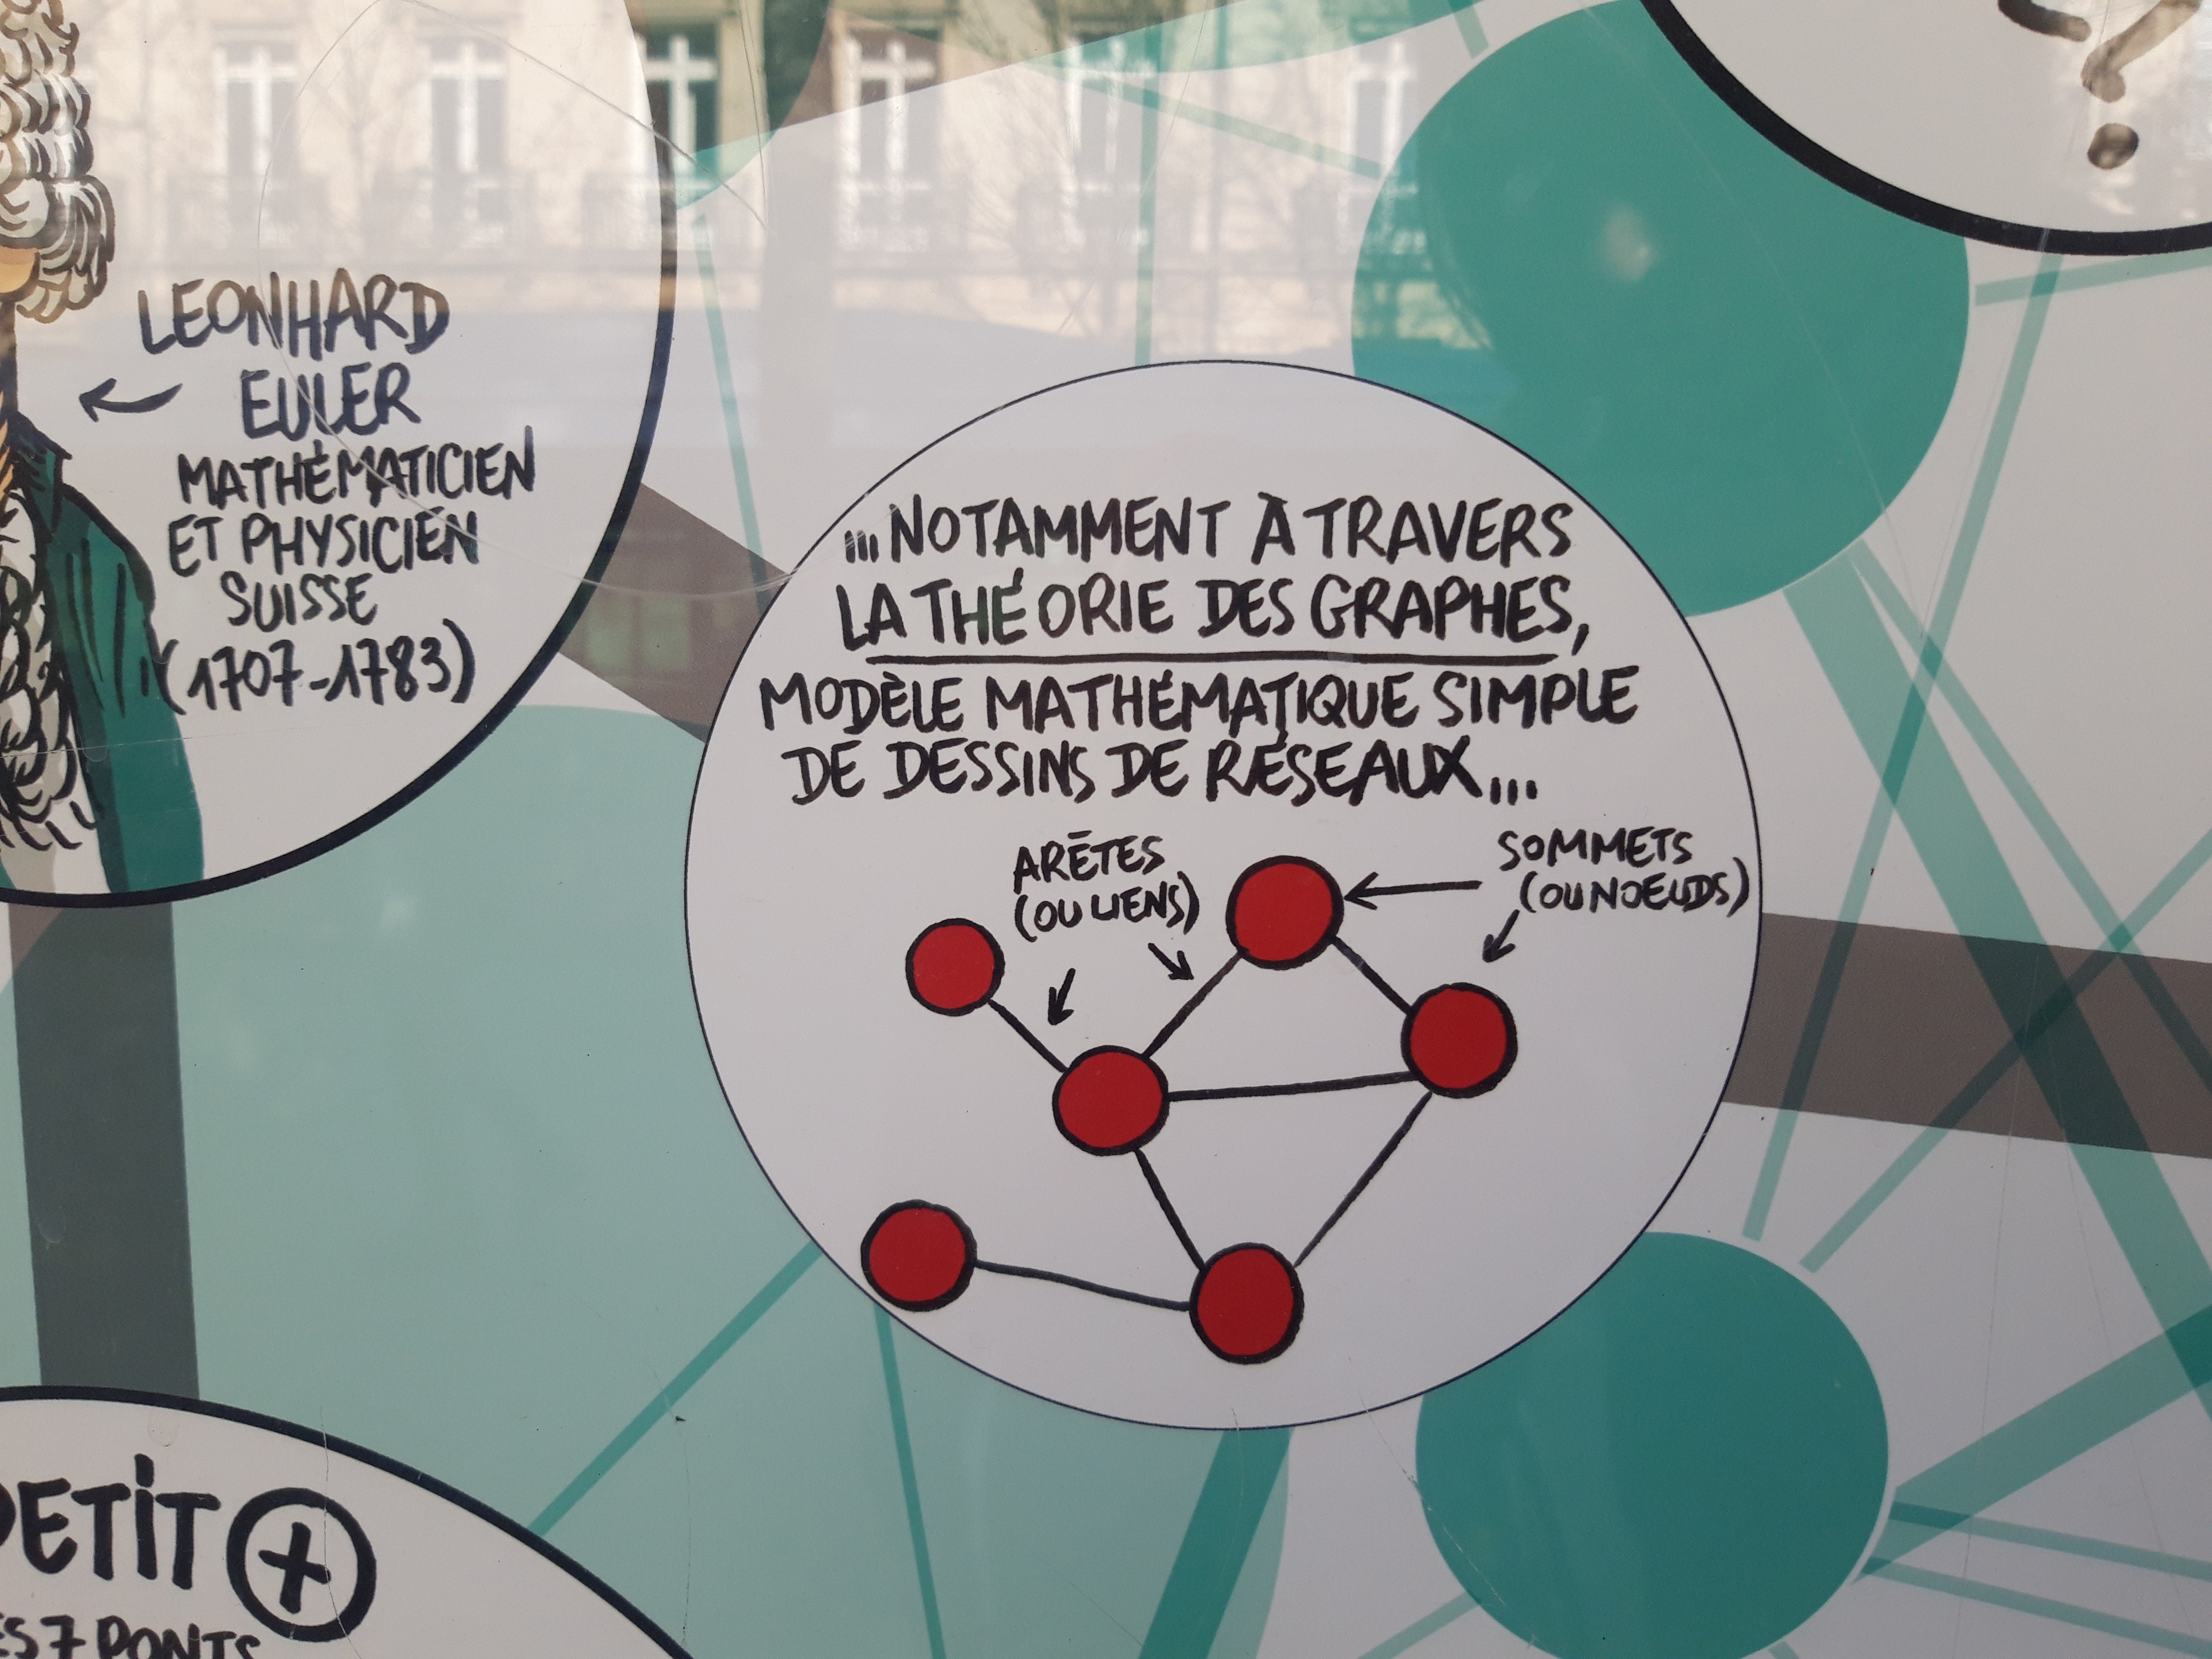 LEONHARD
EULER
MATHÉMATICIEN
ET PHYSICIEN
SUISSE
(1707-1783)
...NOTAMMENT À TRAVERS
LA THÉORIE DES GRAPHES,
MODÈLE MATHÉMATIQUE SIMPLE
DE DESSINS DE RÉSEAUX...
ARÊTES
(OU LIENS)
SOMMETS
(OU NOEUDS)
PETIT +
ES 7 PONTS
?